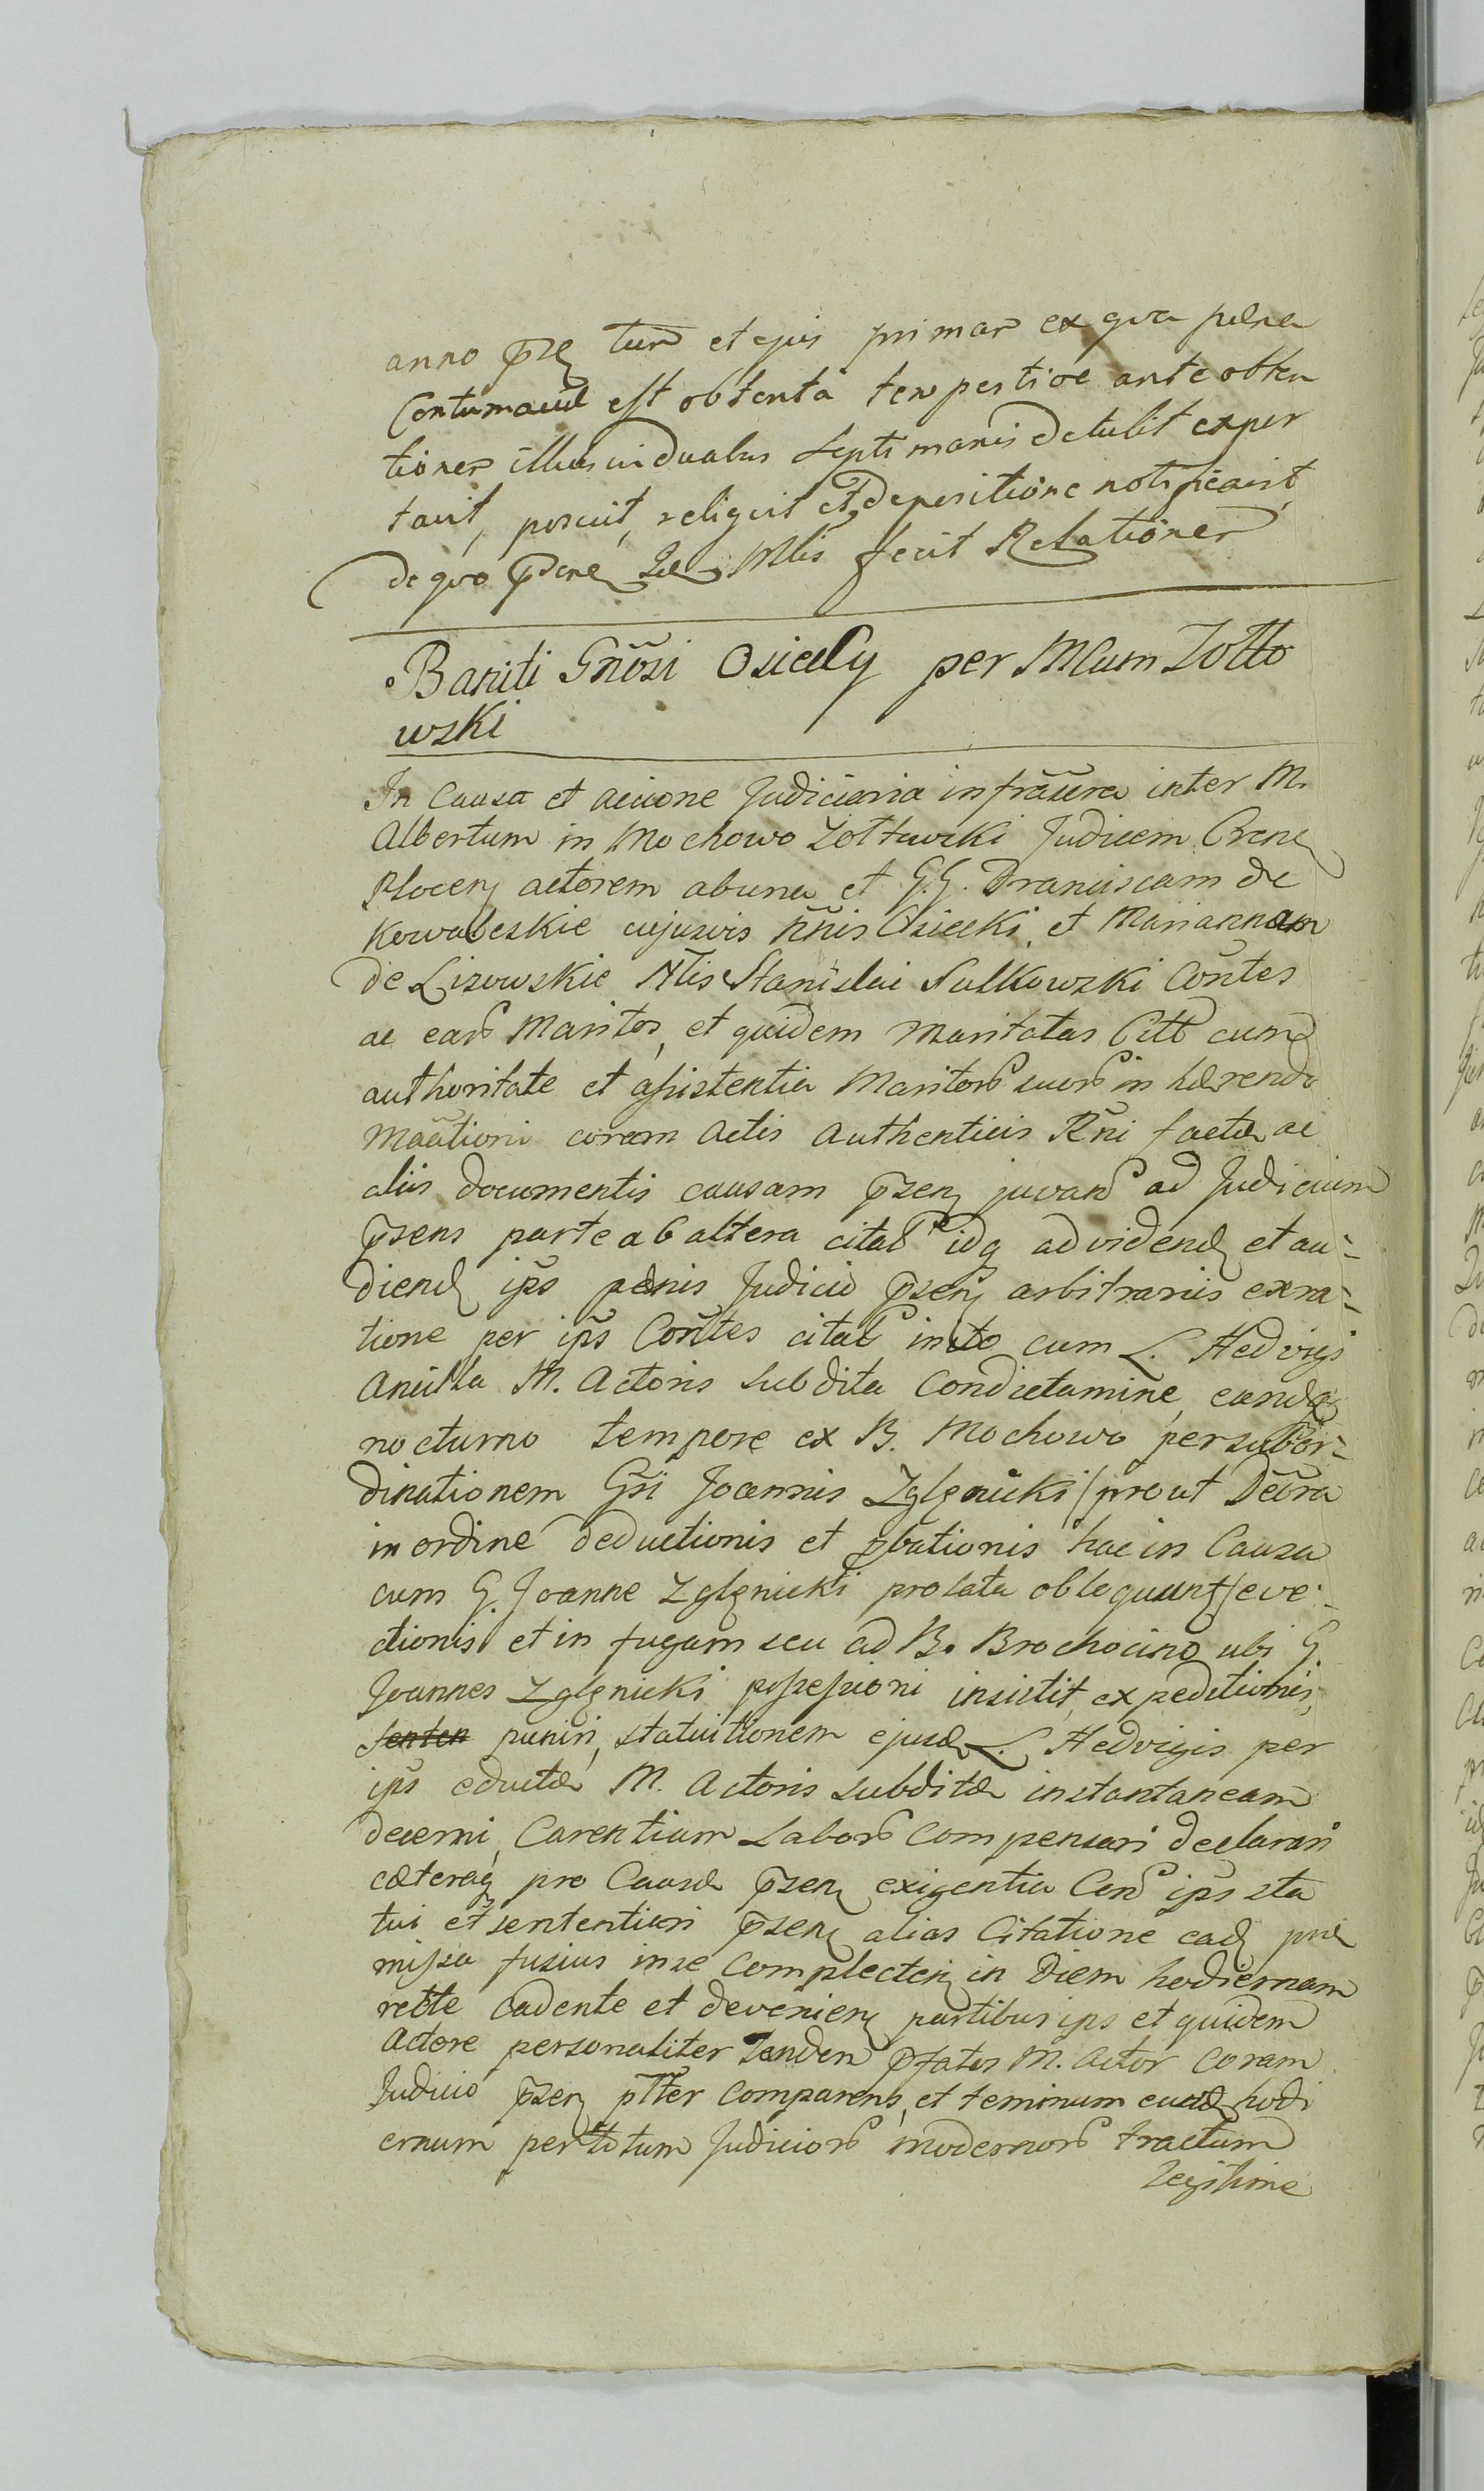 anno p̄zen tum et ejus primam ex qva pæna
Contumaciæ est obtenta tempestive ante obten
tionem illius in duabus septimanis detulit expor
tavit, posuit, reliqvit et de positione notificavit
de qvo præsene Mlis fecit Relationem
Baniti Gñosi Osiecky per Mlum Zołto
wski
In Causa et accione Judiciaria infrãscra inter M.
Albertum in Mochowo Zołtowski Judicem Cren
Plocen actorem abuna et G.G. Franciscam de
Kowaleskie cujusvis ñnis Osiecki, et Mariannam
de Lisowskie Nlis Stanislai Sulkowski Cõntes
ac earũ Maritos, et quidem Maritatas Citt cum
authoritate et assistentia Maritorũ suorũ in hærendo
Mãationi coram Actis Authenticis Rñi factæ ac
aliis documentis causam p̄zen juvan ad Judicium
p̄zens parte ab altera citat idq ad videnđ et au-
dienđ ips pænis Judicio p̄zen arbitrariis ex ra-
tione per ips Cõntes citat inito cum L. Hedvigi
Ancilla M. Actoris Subdita Condictamine, eandæ
nocturno tempore ex B. Mochowo per subor-
dinationem Gsi Joannis Zglenicki/prout Decra
in ordine deductionis et p̱bationis hac in Causa
cum G. Joanne Zglenicki prolata obloquunt/eve-
ctionis et in fugam seu ad B. Brochocino ubi G.
Joannes Zglenicki possessioni insistit, expeditionis,
senten puniri, statuitionem ejusd L. Hedvigis per
ips eductæ M. Actoris subditæ instantaneam
decerni, Carentiam Laborũ compensari declarari
cæteraq pro Causæ p̄zen exigentia Cen ips sta
tui et sententiari p̄zen alias Citatione eađ præ
missa fusius in se Complecten in Diem hodiernam
recte cadente et devenien partibus ips et quidem
Actore personaliter Tandem p̄fatus M. Actor Coram
Judicio p̄zen p̄lter comparens, et terminum eund hodi
ernum per totum Judiciorũ modernorũ tractum
Legitime